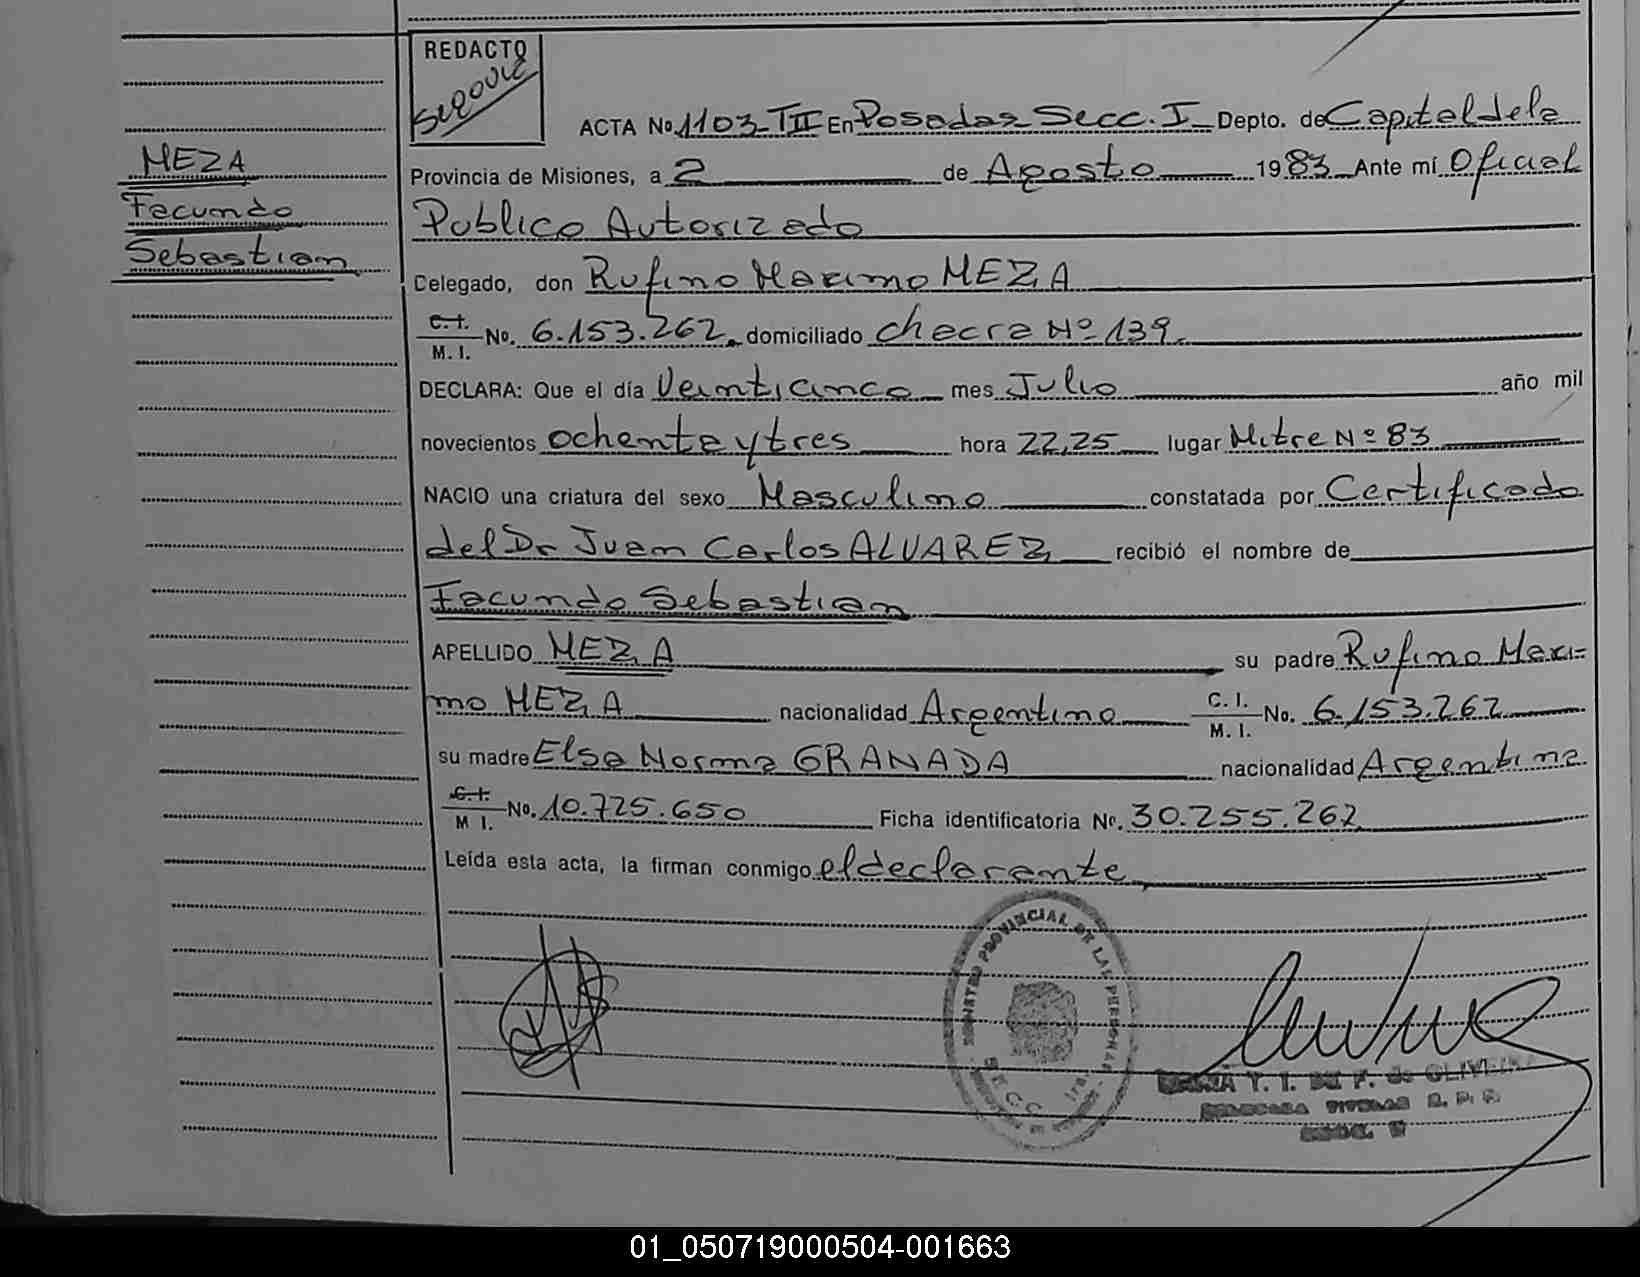 REDACTO
Segovia
ACTA No. 1103 TII En Posadas Secc. I Depto. de Capital de la
MEZA
Provincia de Misiones, a 2 de Agosto 1983 Ante mí Oficial
Facundo
Publico Autorizado
Sebastian
Celegado, don Rufino Maximo MEZA
C. I.
M. I. No. 6.153.262 domiciliado Chacra Nº 139.
DECLARA: Que el día Veinticinco mes Julio año mil
novecientos ochenta y tres hora 22,25 lugar Mitre Nº 83
NACIO una criatura del sexo Masculino constatada por Certificado
del Dr Juan Carlos ALVAREZ recibió el nombre de
Facundo Sebastian
APELLIDO MEZA su padre Rufino Maxi=
mo MEZA nacionalidad Argentino C. I. M. I. No. 6.153.262
su madre Elsa Norma GRANADA nacionalidad Argentina
C. I. M I. No. 10.725.650 Ficha identificatoria No. 30.255.262
Leída esta acta, la firman conmigo el declarante
PROVINCIAL DE LAS PERSONAS
Y. I. DE F. de OLIVEIRA
TITULAR R. P. P.
SECC.
01_050719000504-001663